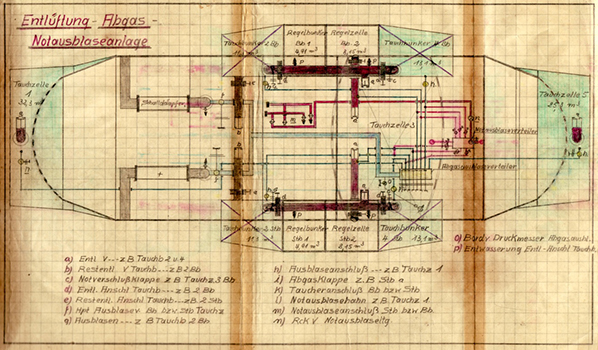 Entlüftung - Abgas -
Notausblaseanlage
Tauchbunker 2 Bb
Regelbunker
Bb 1
Regelzelle
Bb 2
Tauchbunker 4 Bb
Tauchzelle
1
Schalldämpfer
Tauchzelle 3
Tauchzelle 5
Notausblaseverteiler
Abgasausblaseverteiler
Tauchbunker 2 Stb
11,1 m³
Regelbunker
Stb 1
Regelzelle
Stb 2
Tauchbunker
4 Stb
a) Entl V --- z B Tauchb 2 u 4
b) Restentl V Tauchb --- z B 2 Bb
c) Notverschlußklappe z B Tauchz 3 Bb
d) Entl Anschl Tauchb --- z B 2 Bb
e) Restentl Anschl Tauchb --- z B 2 Stb
f) Hpt Ausblasev Bb bzw Stb Tauchz
g) Ausblasen --- z B Tauchb 2 Bb
h) Ausblaseanschluß --- z B Tauchz 1
i) Abgasklappe z B Stb a
k) Taucheranschluß Bb bzw Stb
l) Notausblasehahn z B Tauchz 1
m) Notausblaseanschluß Stb bzw Bb
n) Rck V Notausblaseltg
p) Entwässerung Entl-Anschl Tauchb.